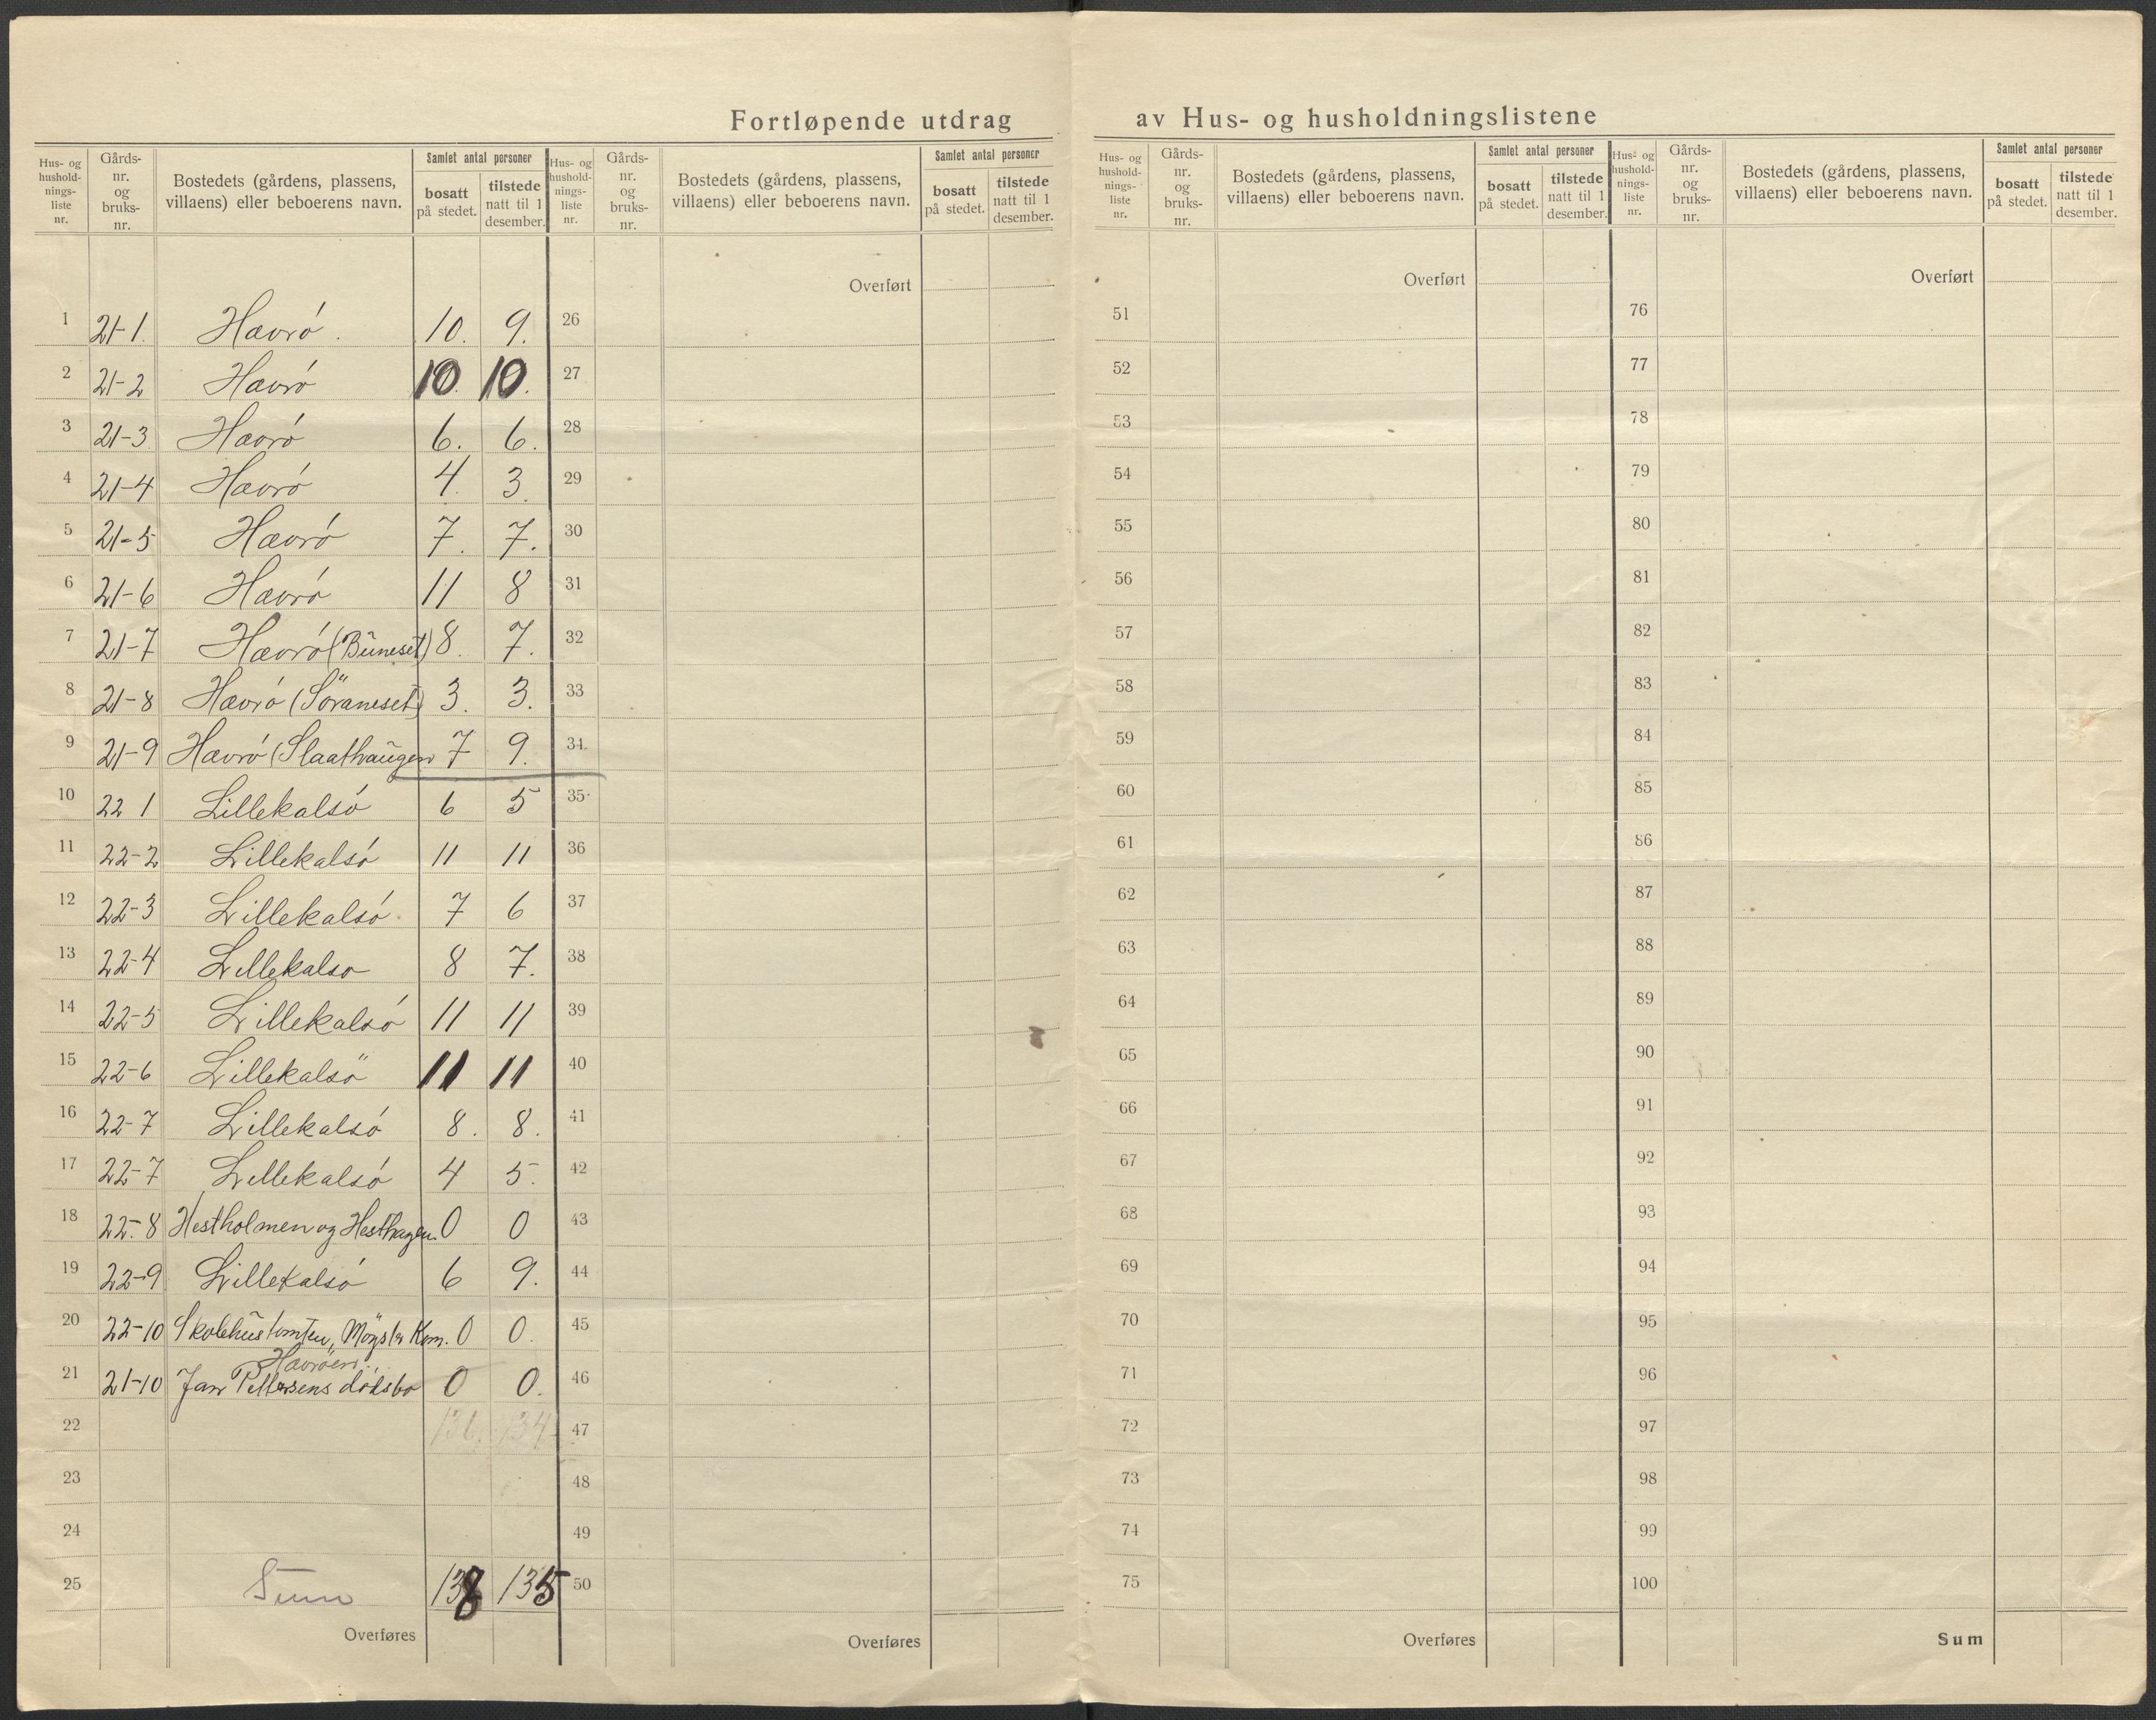 Fortløpende utdrag av Hus- og husholdningslistene
Hus- og hushold-nings-liste nr. | Gårds-nr. og bruks-nr. | Bostedets (gårdens, plassens, villaens) eller beboerens navn. | Samlet antal personer | bosatt på stedet. | tilstede natt til 1 desember.
Hus- og hushold-nings-liste nr. | Gårds-nr. og bruks-nr. | Bostedets (gårdens, plassens, villaens) eller beboerens navn. | Samlet antal personer | bosatt på stedet. | tilstede natt til 1 desember.
Hus- og hushold-nings-liste nr. | Gårds-nr. og bruks-nr. | Bostedets (gårdens, plassens, villaens) eller beboerens navn. | Samlet antal personer | bosatt på stedet. | tilstede natt til 1 desember.
Hus- og hushold-nings-liste nr. | Gårds-nr. og bruks-nr. | Bostedets (gårdens, plassens, villaens) eller beboerens navn. | Samlet antal personer | bosatt på stedet. | tilstede natt til 1 desember.
1 21-1. Hævrö. 10. 9.
2 21-2 Hævrö 10. 10.
3 21-3 Hævrö 6. 6.
4 21-4 Hævrö 4. 3.
5 21-5 Hævrö 7. 7.
6 21-6 Hævrö 11 8
7 21-7 Hævrö (Buneset) 8. 7.
8 21-8 Hævrö (Söraneset) 3. 3.
9 21-9 Hævrö (Slaathaugen 7 9.
10 22 1 Lillekalsö 6 5
11 22-2 Lillekalsö 11 11
12 22-3 Lillekalsö. 7 6
13 22-4 Lillekalso 8 7.
14 22-5 Lillekalsö 11 11
15 22-6 Lillekalsö 11 11
16 22-7 Lillekalsö 8. 8.
17 22-7 Lillekalsö 4 5.
18 22-8 Hestholmen og Hesthagen 0 0
19 22-9 Lillekalsö 6 9.
20 22-10 Skolehustomten, Mögster Kom. 0 0.
Hævröen
21 21-10 Jan Pettersens dödsbo 0 0.
22 136 134
23
24
25 Sum 138 135
Overføres
Overført
26
27
28
29
30
31
32
33
34
35
36
37
38
39
40
41
42
43
44
45
46
47
48
49
50
Overføres
Overført
51
52
53
54
55
56
57
58
59
60
61
62
63
64
65
66
67
68
69
70
71
72
73
74
75
Overføres
Overført
76
77
78
79
80
81
82
83
84
85
86
87
88
89
90
91
92
93
94
95
96
97
98
99
100
Sum